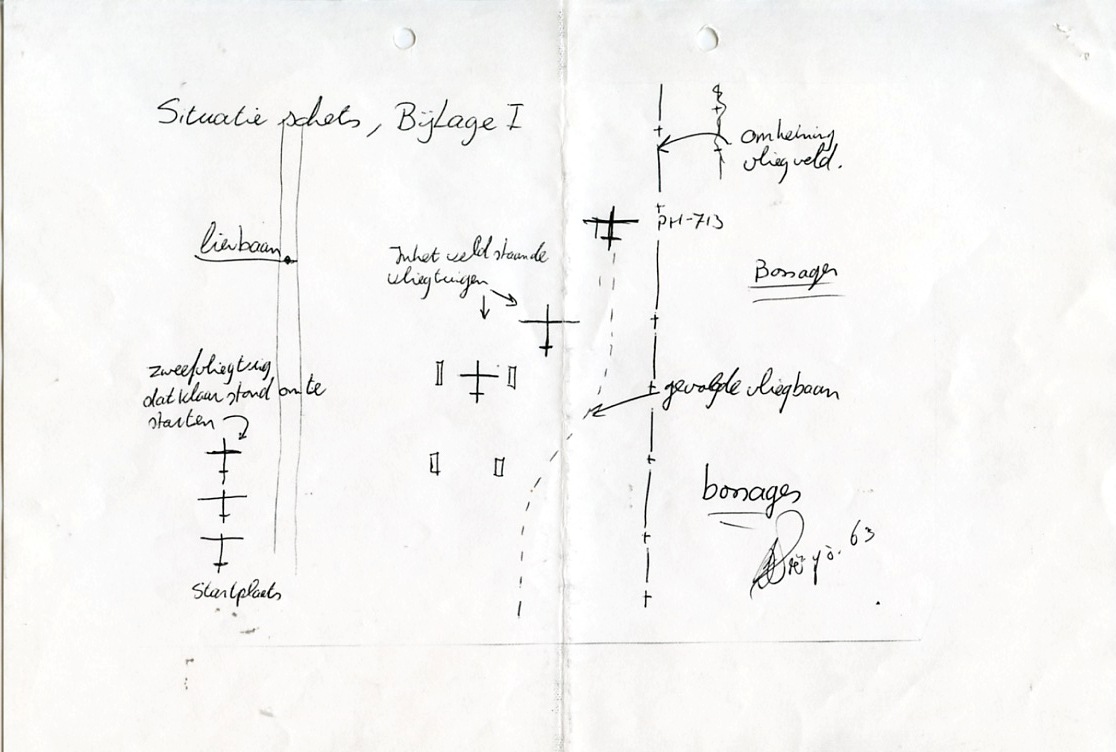 Situatie schets, Bijlage I
omheining
vliegveld.
PH-713
lierbaan
In het veld staande
vliegtuigen
Bossages
zweefvliegtuig
dat klaar stond om te
starten
gevolgde vliegbaan
bossages
63
Startplaats